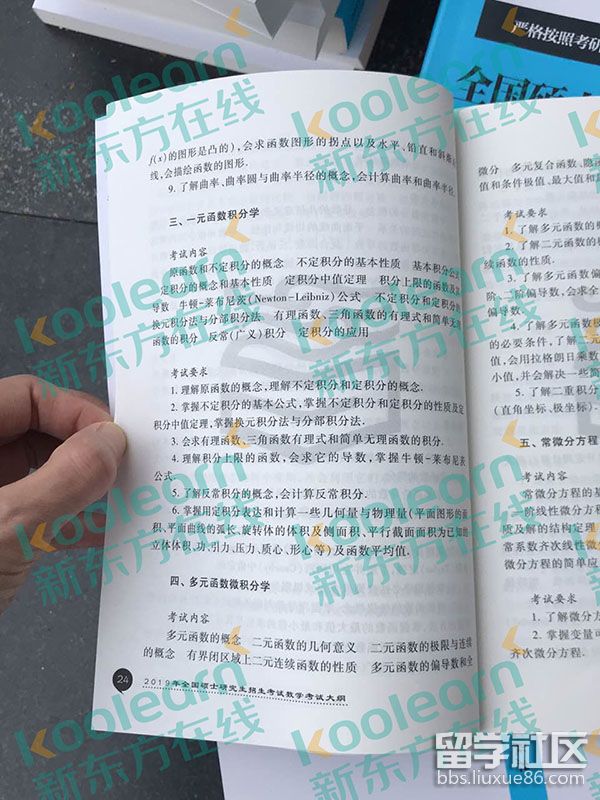 严格按照考研
全国硕
f(x)的图形是凸的),会求函数图形的拐点以及水平、铅直和斜渐
线,会描绘函数的图形.
9. 了解曲率、曲率圆与曲率半径的概念,会计算曲率和曲率半径.
三、一元函数积分学
考试内容
原函数和不定积分的概念 不定积分的基本性质 基本积分公式
定积分的概念和基本性质 定积分中值定理 积分上限的函数及其
导数 牛顿-莱布尼茨(Newton-Leibniz)公式 不定积分和定积分的
换元积分法与分部积分法 有理函数、三角函数的有理式和简单无理
函数的积分 反常(广义)积分 定积分的应用
考试要求
1. 理解原函数的概念,理解不定积分和定积分的概念.
2. 掌握不定积分的基本公式,掌握不定积分和定积分的性质及定
积分中值定理,掌握换元积分法与分部积分法.
3. 会求有理函数、三角函数有理式和简单无理函数的积分.
4. 理解积分上限的函数,会求它的导数,掌握牛顿-莱布尼茨
公式.
5. 了解反常积分的概念,会计算反常积分.
6. 掌握用定积分表达和计算一些几何量与物理量(平面图形的面
积、平面曲线的弧长、旋转体的体积及侧面积、平行截面面积为已知的
立体体积、功、引力、压力、质心、形心等)及函数平均值.
四、多元函数微积分学
考试内容
多元函数的概念 二元函数的几何意义 二元函数的极限与连续
的概念 有界闭区域上二元连续函数的性质 多元函数的偏导数和全
24
2019年全国硕士研究生招生考试数学考试大纲
微分 多元复合函数、隐
值和条件极值、最大值和
考试要求
1. 了解多元函数的概
2. 了解二元函数的极
续函数的性质.
3. 了解多元函数偏
阶、二阶偏导数,会求全
偏导数.
4. 了解多元函数极
的必要条件,了解二元
值,会用拉格朗日乘数
小值,并会解决一些简
5. 了解二重积分
(直角坐标、极坐标).
五、常微分方程
考试内容
常微分方程的基
一阶线性微分方程
质及解的结构定理
常系数齐次线性微
微分方程的简单应
考试要求
1. 了解微分方
2. 掌握变量可
齐次微分方程.
koolearn
新东方在线
留学社区
bbs.liuxue86.com